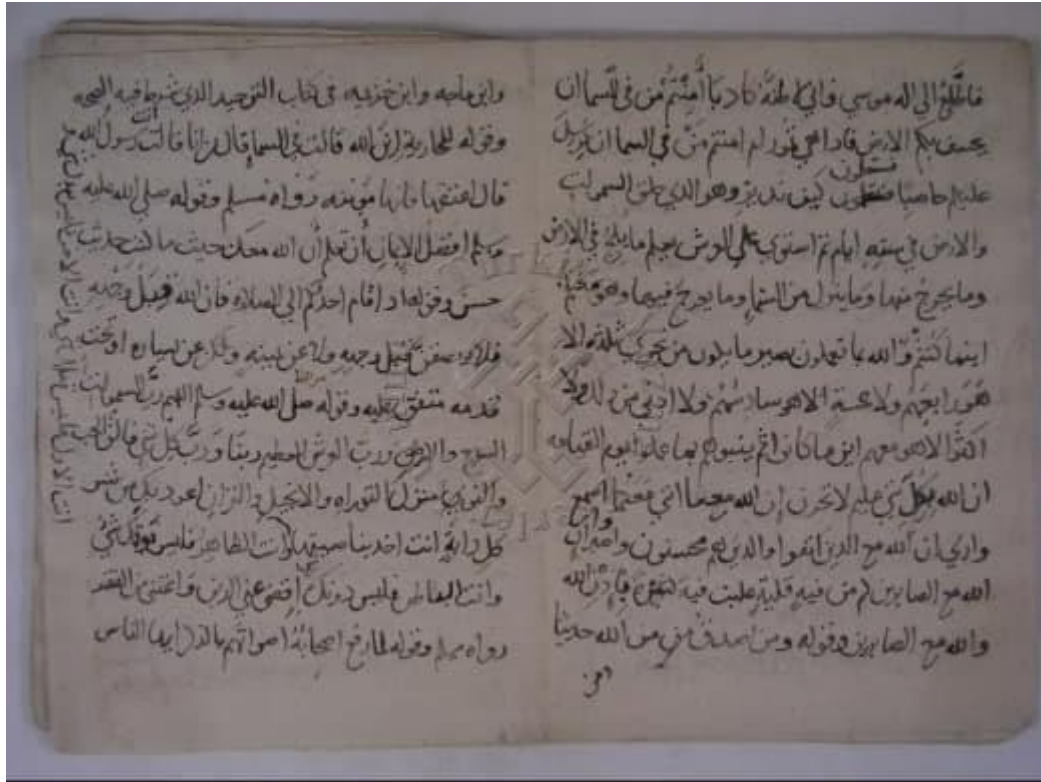 فاطلع الى اله موسى واني لاظنه كاذبا أأمنتم من في السما ان
يخسف بكم الارض فاذا هي تمور ام امنتم من في السما ان يرسل
عليكم حاصبا فستعلمون كيف نذير وهو الذي خلق السموات
والارض في ستة ايام ثم استوى على العرش يعلم ما يلج في الارض
وما يخرج منها وما ينزل من السما وما يعرج فيها وهو معكم
اينما كنتم والله بما تعملون بصير ما يكون من نجوى ثلثة الا
هو رابعهم ولا خمسة الا هو سادسهم ولا ادنى من ذلك ولا
اكثر الا هو معهم اين ما كانوا ثم ينبئهم بما عملوا يوم القيامه
ان الله بكل شي عليم لا تحزن ان الله معنا انني معكما اسمع
وارى ان الله مع الذين اتقوا والذين هم محسنون واصبروا ان
الله مع الصابرين كم من فية قليلة غلبت فية كثيرة باذن الله
والله مع الصابرين وقوله ومن اصدق من الله حديثا
وابن ماجه وابن خزيمه في كتاب التوحيد الذي فيه الصحه
وقوله للجارية اين الله قالت في السما قال من انا قالت رسول الله
قال اعتقها فانها مومنه رواه مسلم وقوله صلى الله عليه
وسلم افضل الايمان أن تعلم أن الله معك حيث ما كنت حديث
حسن وقوله اذا قام احدكم الى الصلاه فان الله قبل وجهه
فلا يبصقن قبل وجهه ولا عن يمينه ولكن عن يساره او تحت
قدمه متفق عليه وقوله صلى الله عليه وسلم اللهم رب السموات
السبع والارض ورب العرش العظيم ربنا ورب كل شي فالق الحب
والنوى منزل التوراه والانجيل والقران اعوذ بك من شر
كل دابة انت اخذ بناصيتها انت الظاهر فليس فوقك شي
وانت الباطن فليس دونك شي اقض عني الدين واغنني من الفقر
رواه مسلم وقوله لما رفع اصحابه اصواتهم بالذكر ايها الناس
انت الاول فليس قبلك شي وانت الاخر فليس بعدك شي